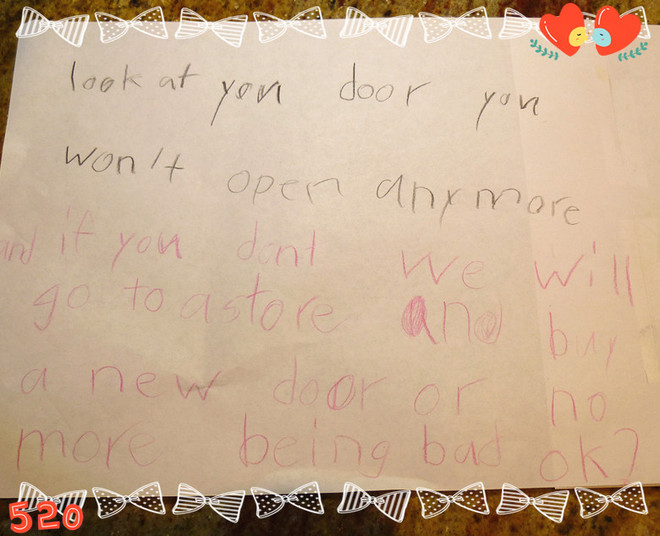 look at you door you
won't open anymore
and if you dont we will
go to a store and buy
a new door or no
more being bad ok?
520